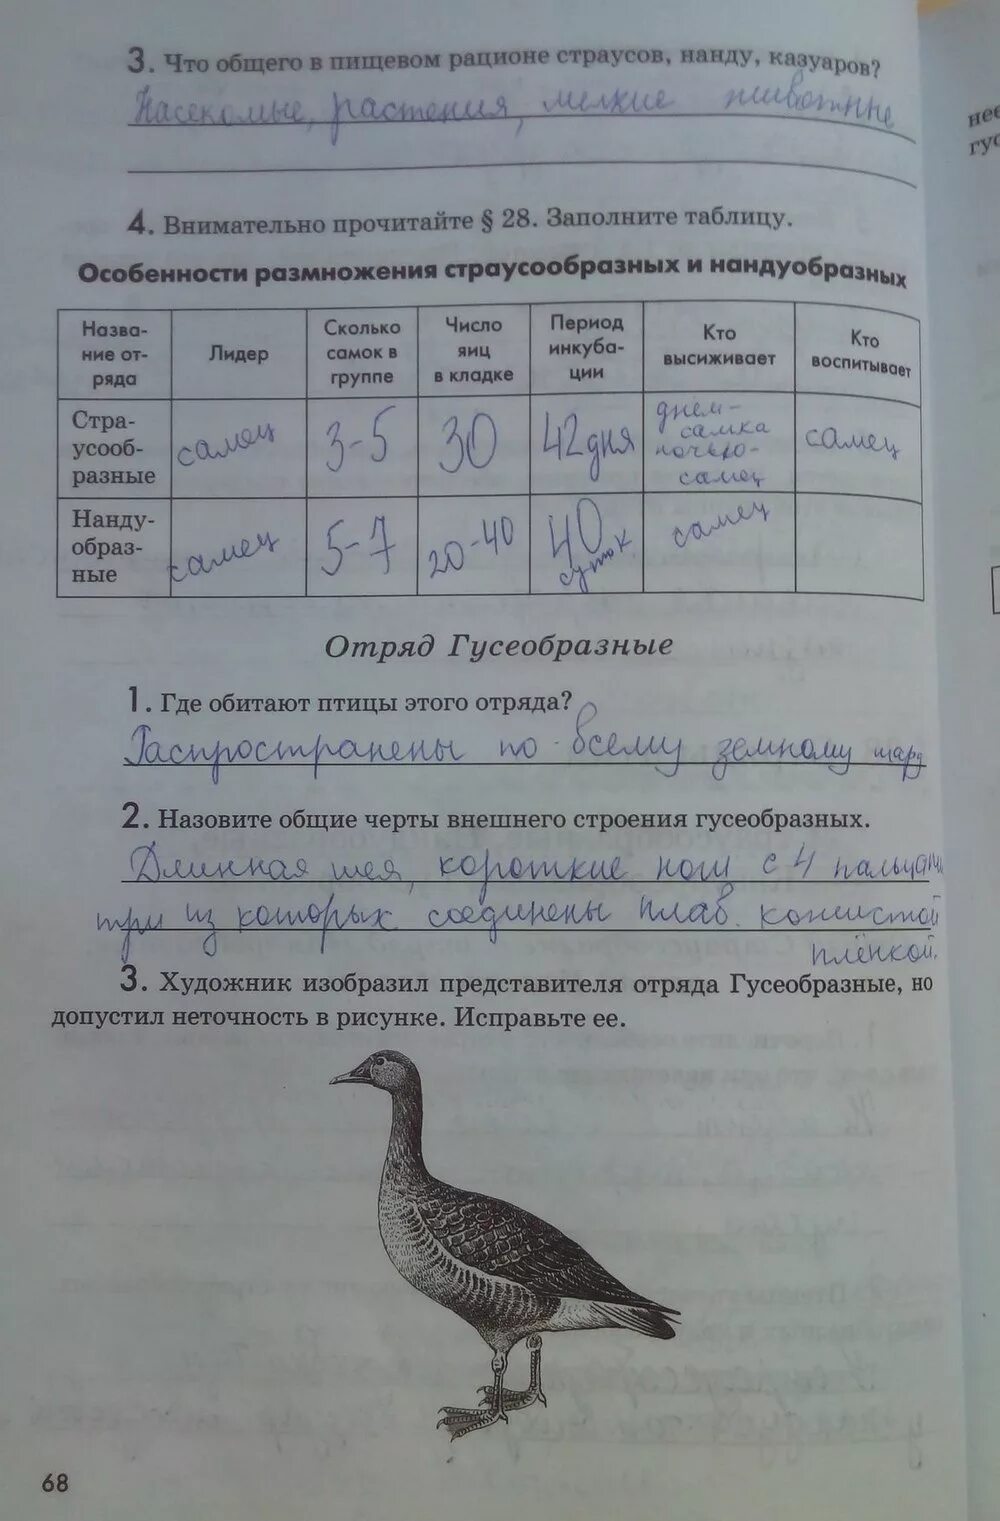 3. Что общего в пищевом рационе страусов, нанду, казуаров?
Насекомые, растения, мелкие животные
4. Внимательно прочитайте § 28. Заполните таблицу.
Особенности размножения страусообразных и нандуобразных
Назва-
ние от-
ряда
Лидер
Сколько
самок в
группе
Число
яиц
в кладке
Период
инкуба-
ции
Кто
высиживает
Кто
воспитывает
Стра-
усооб-
разные
самец
3-5
30
42 дня
днем-
самка
ночью-
самец
самец
Нанду-
образ-
ные
самец
5-7
20-40
40
суток
самец
Отряд Гусеобразные
1. Где обитают птицы этого отряда?
Распространены по всему земному шару
2. Назовите общие черты внешнего строения гусеобразных.
Длинная шея, короткие ноги с 4 пальцами
три из которых соединены плав. кожистой
плёнкой.
3. Художник изобразил представителя отряда Гусеобразные, но
допустил неточность в рисунке. Исправьте ее.
68
нес
гус